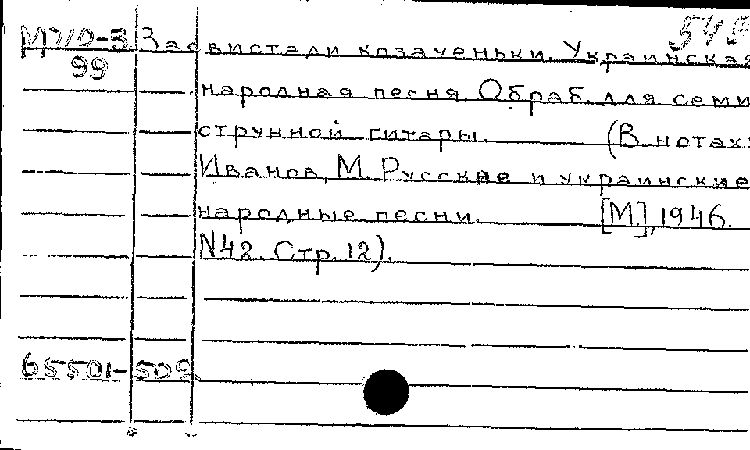 М710-3 Засвистали козаченьки. Украинская
99
народная песня. Обраб. для семи
струнной гитары. (В нотах:
Иванов, М. Русские и украинские
народные песни. [М.], 1946.
N42. Стр. 12).
65501-509